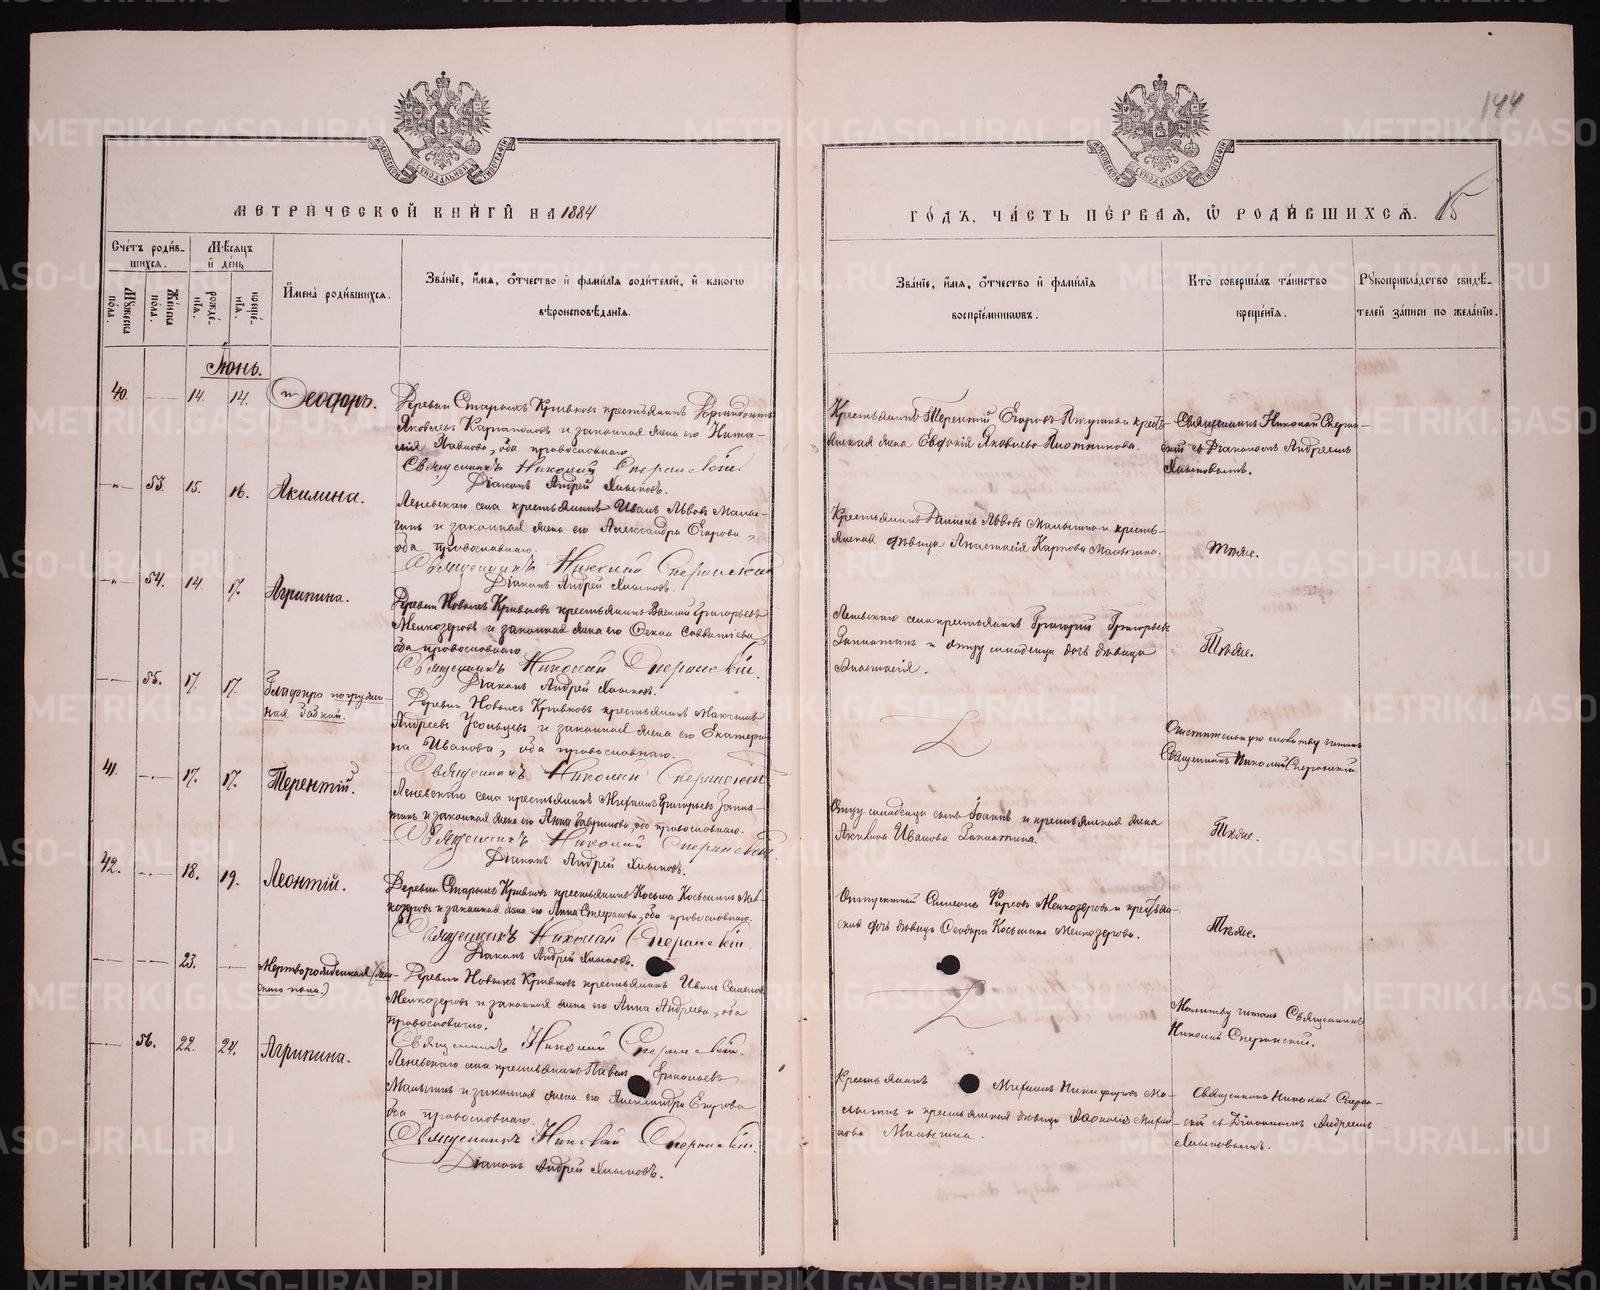 144
МЕТРИЧЕСКОЙ КНИГИ НА 1884
ГОДЪ, ЧАСТЬ ПЕРВАЯ, Ѡ РОДИВШИХСЯ. 15
Счетъ родив-
шихся.
Мѣсяцъ
и день
Мужеска
пола.
Женска
пола.
рожде-
нія.
креще-
нія.
Имена родившихся.
Званіе, имя, отчество и фамилія родителей, и какого
вѣроисповѣданія.
Званіе, имя, отчество и фамилія
воспріемниковъ.
Кто совершалъ таинство
крещенія.
Рукоприкладство свидѣ-
телей записи по желанію.
Іюнь.
40. 14. 14. Ѳеодоръ.
Деревни Старыхъ Кривковъ крестьянинъ
Яковлевъ и законная жена его Ната-
лія Павлова, оба православнаго.
Священникъ Николай Сперанскій.
Діаконъ Андрей Хлыновъ.
Крестьянинъ Терентій Егоровъ и кресть-
янская жена Евдокія Яковлева Плотникова.
Священникъ Николай Сперан-
скій съ Діакономъ Андреемъ
Хлыновымъ.
53. 15. 16. Акилина.
Леневскаго села крестьянинъ Иванъ Львовъ Малы-
гинъ и законная жена его Александра Егорова,
оба православнаго.
Священникъ Николай Сперанскій
Діаконъ Андрей Хлыновъ.
Крестьянинъ Львовъ Малыгинъ и кресть-
янская дѣвица Анастасія Карпова Малыгина.
Тѣже.
54. 14 17. Агрипина.
Деревни Новыхъ Кривковъ крестьянинъ Василій Григорьевъ
Мелкозеровъ и законная жена его Ѳекла Савватіева,
оба православнаго
Священникъ Николай Сперанскій.
Діаконъ Андрей Хлыновъ.
Леневскаго села крестьянинъ Григорій Григорьевъ
Заплатинъ и отцу младенца дочь дѣвица
Анастасія.
Тѣже.
55. 17. 17. Глафира погружен-
ная бабкой.
Деревни Новыхъ Кривковъ крестьянинъ Максимъ
Андреевъ Усольцевъ и законная жена его Екатери-
на Иванова, оба православнаго.
Священникъ Николай Сперанскій
Очистительную молитву читалъ
Священникъ Николай Сперанскій.
41. 17. 17. Терентій.
Леневскаго села крестьянинъ Михаилъ Григорьевъ Запла-
тинъ и законная жена его Анна Гаврилова, оба православнаго.
Священникъ Николай Сперанскій.
Діаконъ Андрей Хлыновъ.
Отцу младенца сынъ Іоаннъ и крестьянская жена
Акилина Иванова Заплатина.
Тѣже.
42. 18. 19. Леонтій.
Деревни Старыхъ Кривковъ крестьянинъ Косьма Косьминъ Мел-
козеровъ и законная жена его Анна Стефанова, оба православнаго.
Священникъ Николай Сперанскій.
Діаконъ Андрей Хлыновъ.
Отпускный Симеонъ Фирсовъ Мелкозеровъ и крестьян-
ская дочь дѣвица Ѳеодора Косьмина Мелкозерова.
Тѣже.
23. Мертворожденная (жен-
скаго пола.)
Деревни Новыхъ Кривковъ крестьянинъ Иванъ Семеновъ
Мелкозеровъ и законная жена его Анна Андреева, оба
православнаго.
Священникъ Николай Сперанскій.
Молитву читалъ Священникъ
Николай Сперанскій.
56. 22. 24. Агрипина.
Леневскаго села крестьянинъ Павелъ Ермолаевъ
Малыгинъ и законная жена его Александра Егорова
оба православнаго.
Священникъ Николай Сперанскій.
Діаконъ Андрей Хлыновъ.
Крестьянинъ Михаилъ Никифоровъ Ма-
лыгинъ и крестьянская дѣвица Михай-
лова Малыгина.
Священникъ Николай Сперан-
скій съ Діакономъ Андреемъ
Хлыновымъ.
METRIKI.GASO-URAL.RU